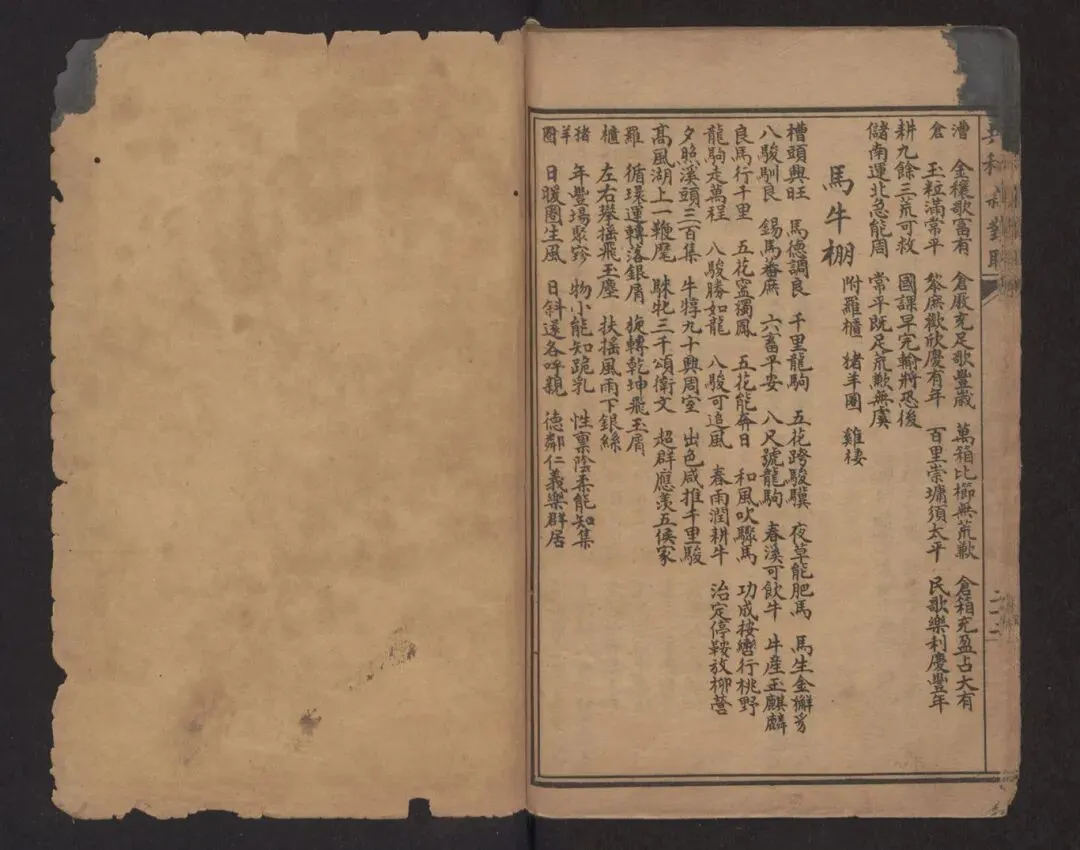 漕 金穰歌富有 倉廒充足歌豐歲 萬箱比櫛無荒歉 倉箱充盈占大有
倉 玉粒滿常平 黎庶歡欣慶有年 百里崇墉須太平 民歌樂利慶豐年
耕九餘三荒可救 國課早完輸將恐後
儲南運北急能周 常平既足荒歉無虞
馬牛棚 附羅櫃 猪羊圈 雞棲
槽頭興旺 馬德調良 千里龍駒 五花跨駿驥 夜草能肥馬 馬生金獬豸
八駿馴良 錫馬蕃庶 六畜平安 八尺號龍駒 春溪可飲牛 牛産玉麒麟
良馬行千里 五花寧獨鳳 五花能奔日 和風吹驟馬 功成按轡行桃野
龍駒走萬程 八駿勝如龍 八駿可追風 春雨潤耕牛 治定停鞍放柳營
夕照溪頭三百集 牛犉九十興周室 出色咸推千里駿
高風湖上一鞭麾 騋牝三千頌衛文 超群應羨五侯家
羅 循環運轉落銀屑 旋轉乾坤飛玉屑
櫃 左右攀搖飛玉塵 扶搖風雨下銀絲
猪羊 年豐場聚穸 物小能知跪乳 性禀陰柔能知集
圈 日暖圈生風 日斜還各呼親 德鄰仁義樂群居